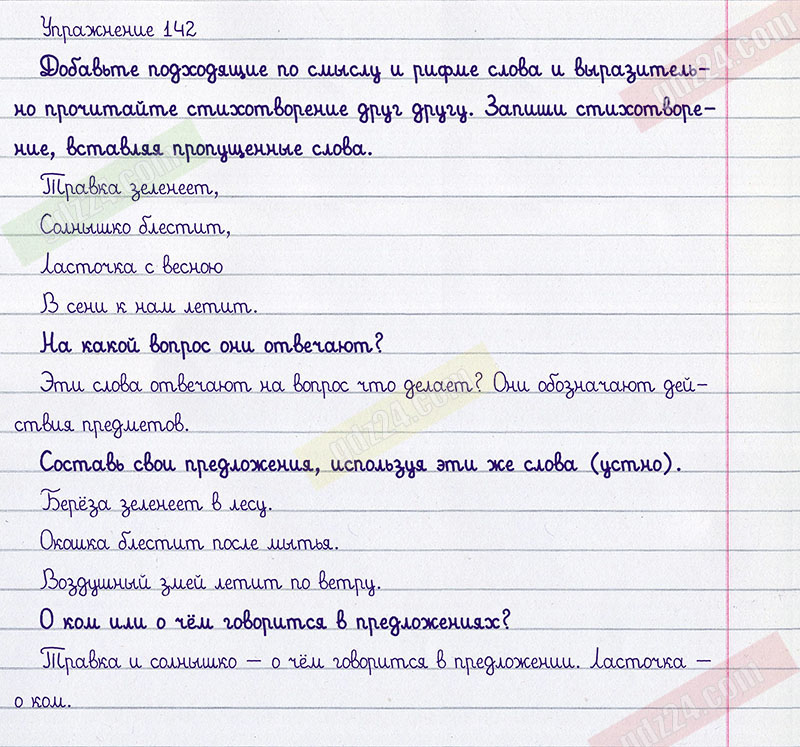 Упражнение 142
Добавьте подходящие по смыслу и рифме слова и выразитель-
но прочитайте стихотворение друг другу. Запиши стихотворе-
ние, вставляя пропущенные слова.
Травка зеленеет,
Солнышко блестит,
Ласточка с весною
В сени к нам летит.
На какой вопрос они отвечают?
Эти слова отвечают на вопрос что делает? Они обозначают дей-
ствия предметов.
Составь свои предложения, используя эти же слова (устно).
Берёза зеленеет в лесу.
Окошка блестит после мытья.
Воздушный змей летит по ветру.
О ком или о чём говорится в предложениях?
Травка и солнышко — о чём говорится в предложении. Ласточка —
о ком.
gdz24.com
gdz24.com
gdz24.com
gdz24.com